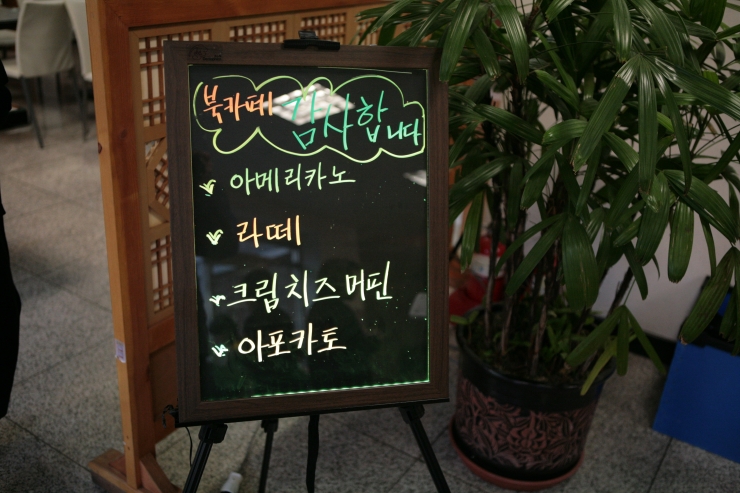 북카페 감사합니다
아메리카노
라떼
크림치즈머핀
아포카토